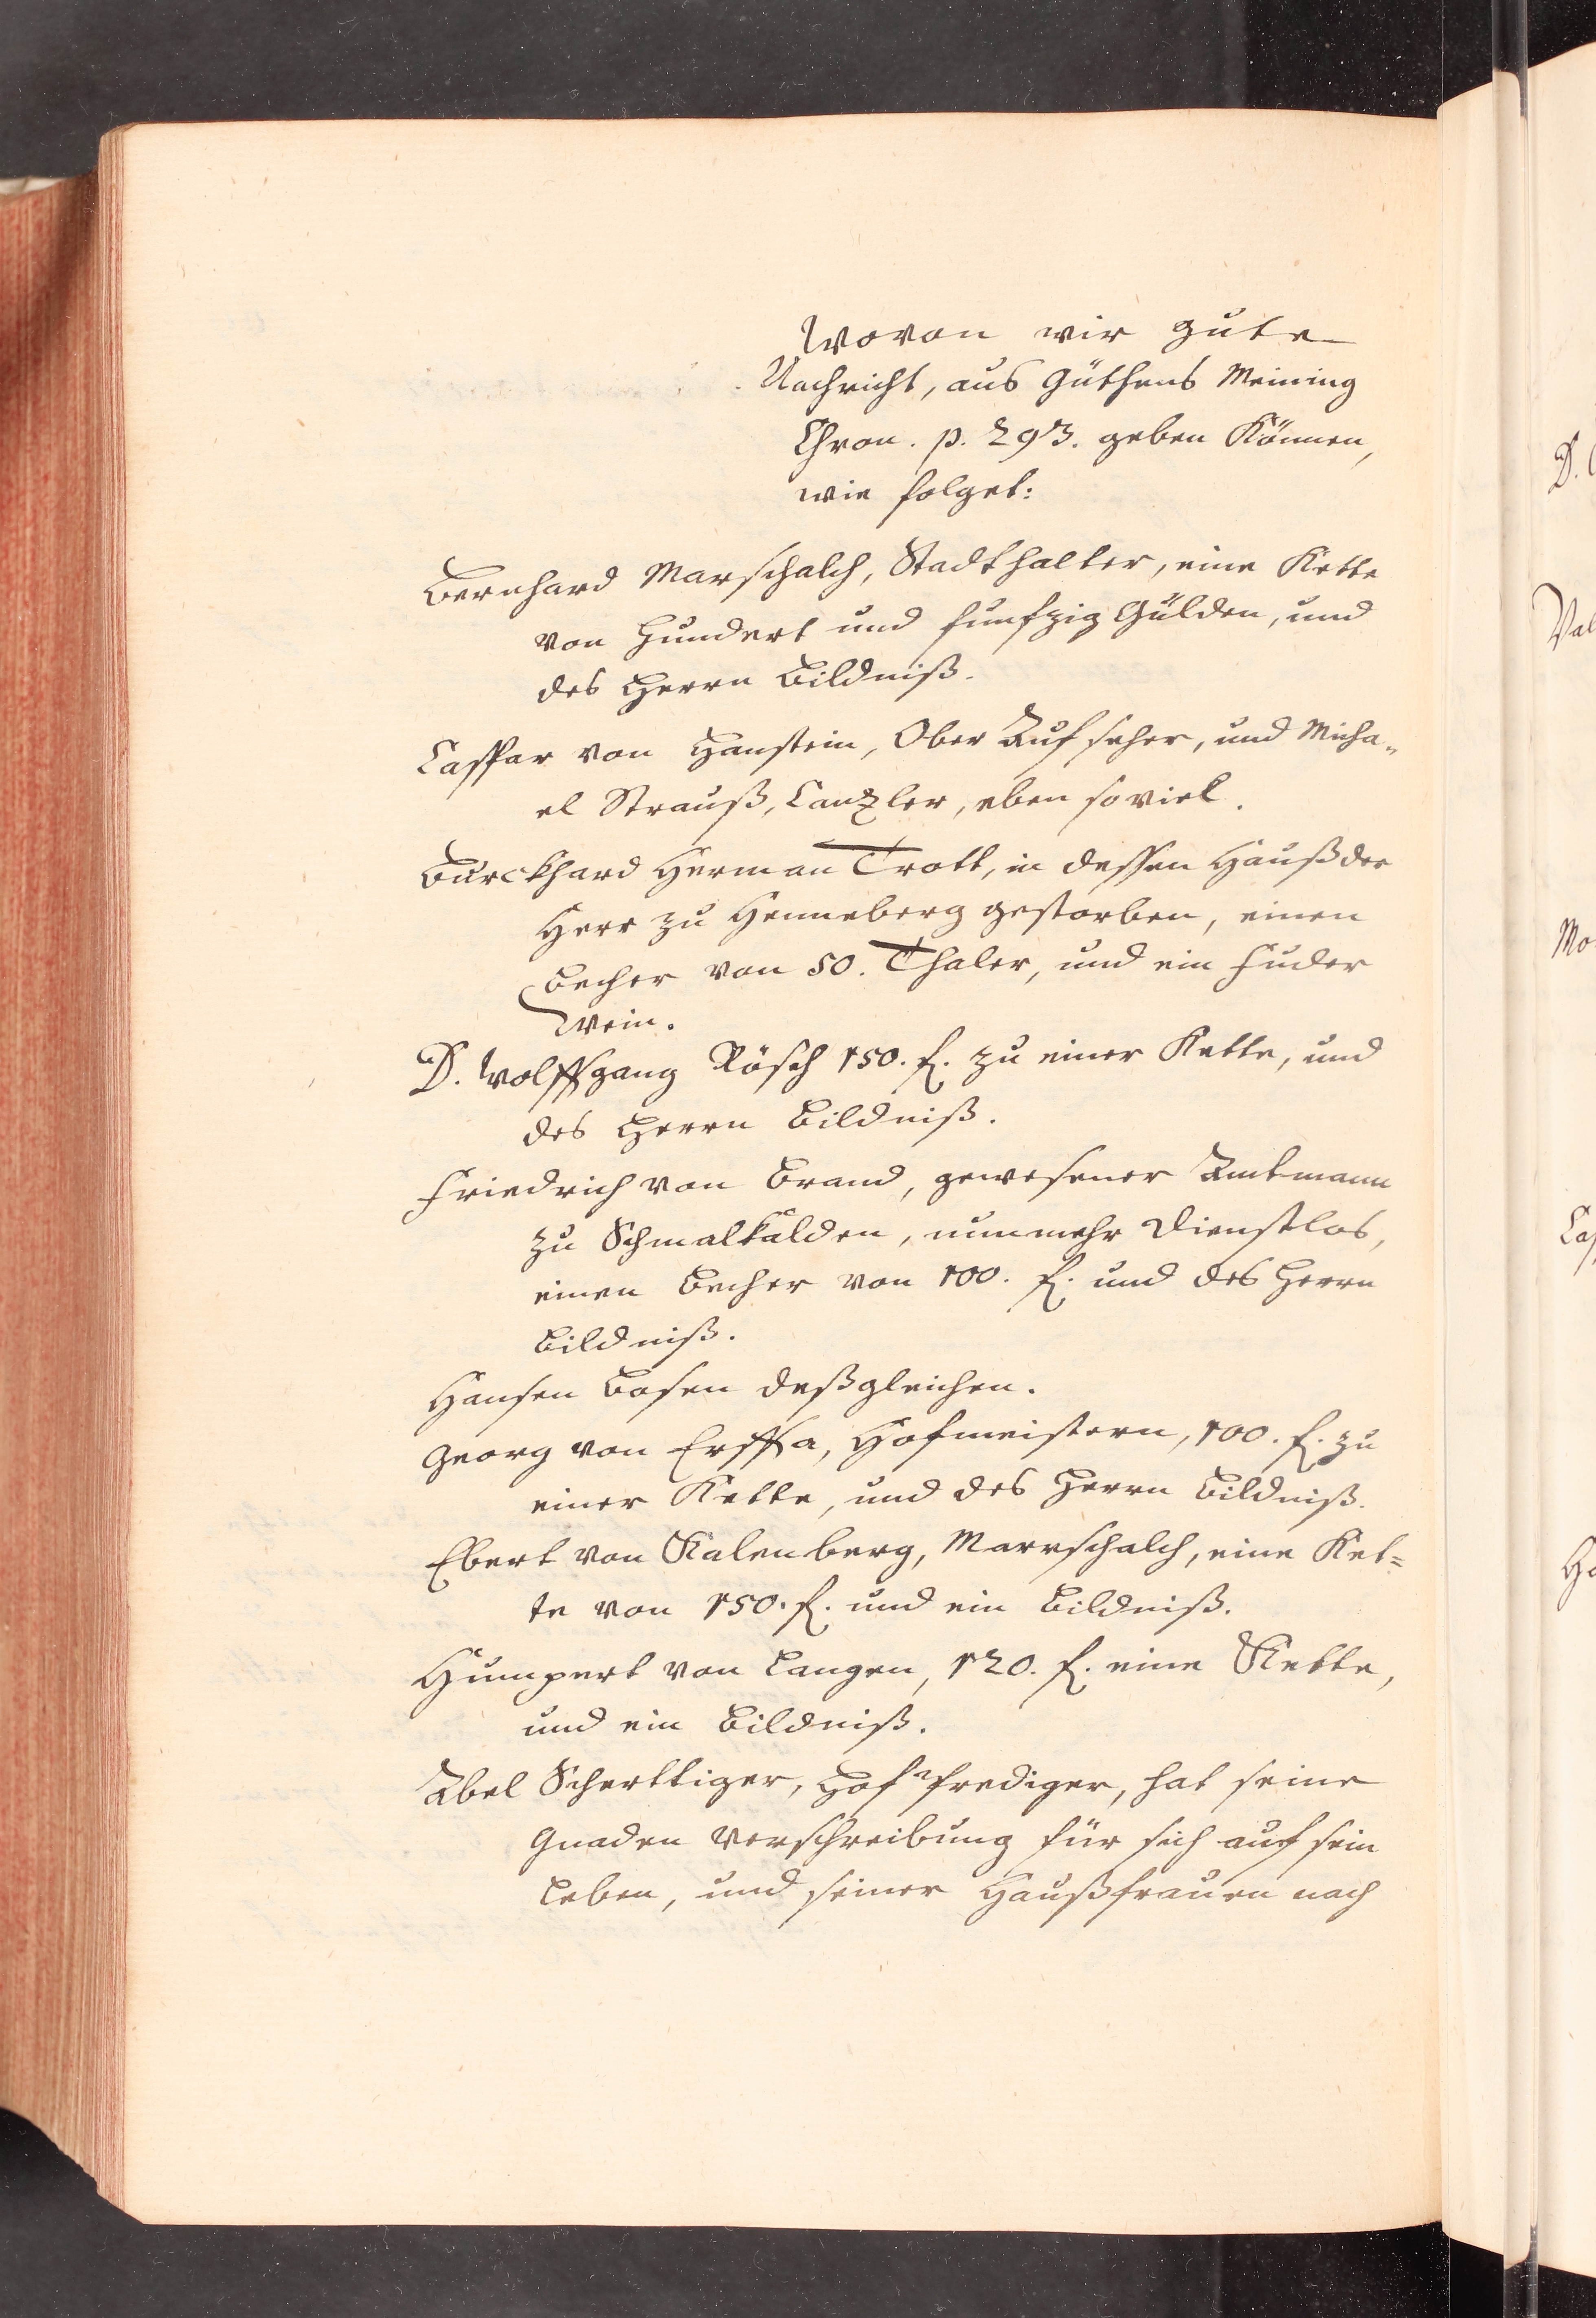 Wovon wir gute
Nachricht, aus Güthens Meining
Chron. p. 293. geben Können,
wie folget:
Bernhard Marschalch, Stadthalter, eine Kette
von Hundert und funfzig Gülden, und
des Herrn Bildniß.
Caspar von Hanstein, Ober Aufseher, und Micha„
el Strauß, Canzler, eben so viel.
Burckhard Herman Trott, in dessen Hauß der
Herr zu Henneberg gestorben, einen
Becher von 50. Thaler, und ein Fuder
Wein.
D. Wolffgang Rösch 150. f. zu einer Kette, und
des Herrn Bildniß.
Friedrich von Brand, gewesener Amtmann
zu Schmalkalden, nunmehr Dienstlos,
einen Becher von 100. f. und des Herrn
Bildniß.
Hansen Bosen deßgleichen.
Georg von Erffa, Hofmeistern, 100. f. zu
einer Kette, und des Herrn Bildniß.
Ebert von Kalenberg, Marrschalch, eine Ket=
te von 150. f. und ein Bildniß.
Humpert von Langen, 120. f. eine Kette,
und ein Bildniß.
Abel Scherttiger, Hof Prediger, hat seine
Gnaden Verschreibung für sich auf sein
Leben, und seiner Haußfrauen nach
D.
Val
Mo
Cas
Ha